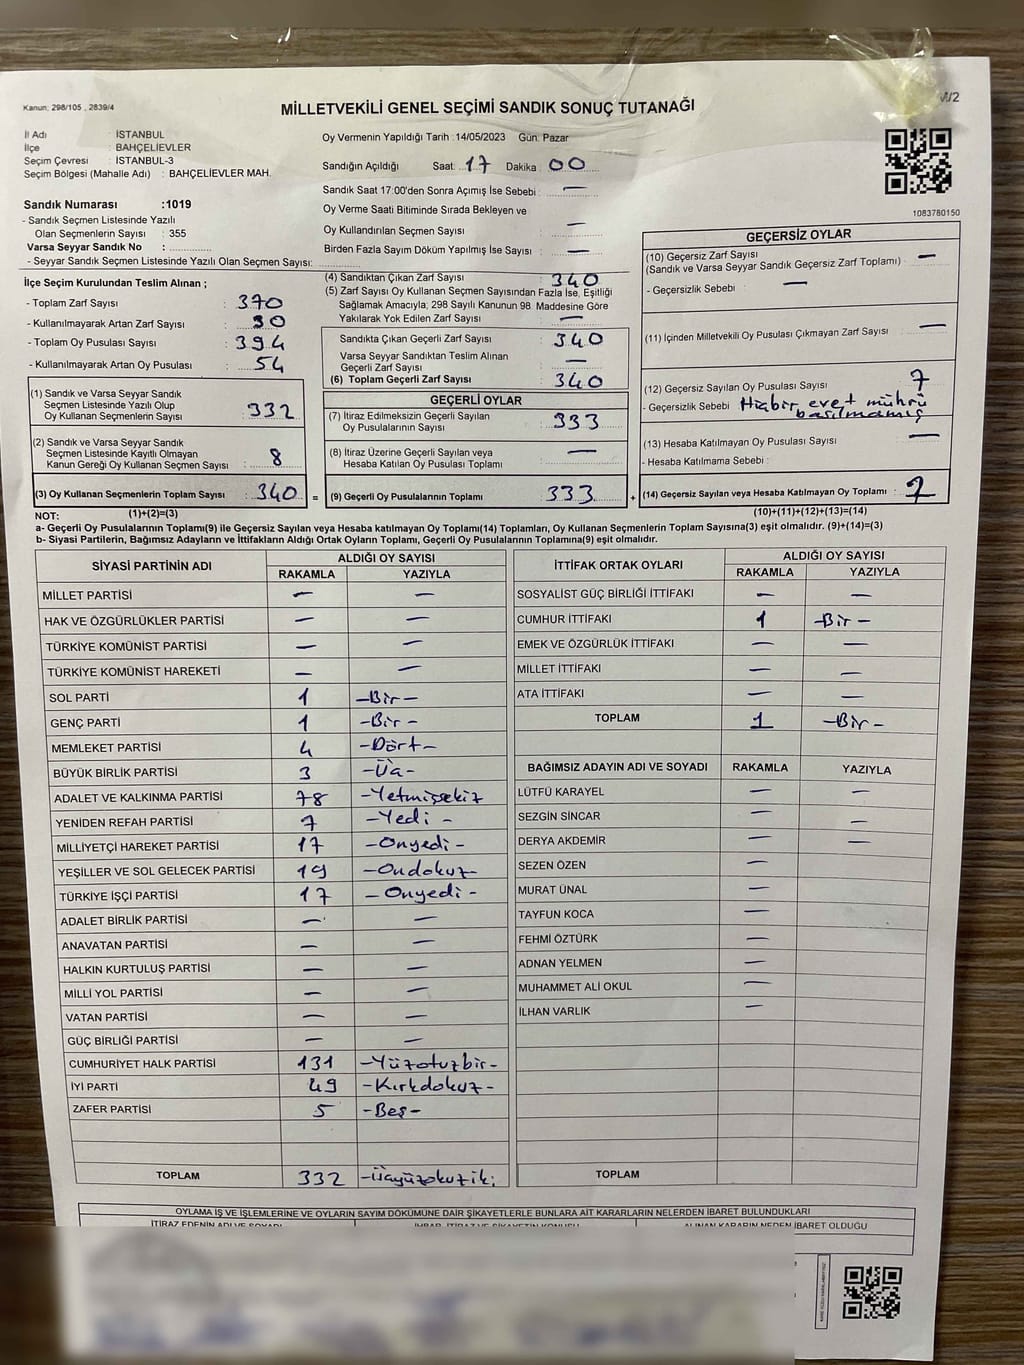 Kanun: 298/105 , 2839/4
MİLLETVEKİLİ GENEL SEÇİMİ SANDIK SONUÇ TUTANAĞI
M/2
İl Adı : İSTANBUL
İlçe : BAHÇELİEVLER
Seçim Çevresi : İSTANBUL-3
Seçim Bölgesi (Mahalle Adı) : BAHÇELİEVLER MAH.
Sandık Numarası :1019
- Sandık Seçmen Listesinde Yazılı
Olan Seçmenlerin Sayısı : 355
Varsa Seyyar Sandık No :
- Seyyar Sandık Seçmen Listesinde Yazılı Olan Seçmen Sayısı:
Oy Vermenin Yapıldığı Tarih :14/05/2023 Gün: Pazar
Sandığın Açıldığı Saat: 17 Dakika: 00
Sandık Saat 17:00'den Sonra Açımış İse Sebebi : —
Oy Verme Saati Bitiminde Sırada Bekleyen ve
Oy Kullandırılan Seçmen Sayısı : —
Birden Fazla Sayım Döküm Yapılmış İse Sayısı : —
1083780150
İlçe Seçim Kurulundan Teslim Alınan ;
- Toplam Zarf Sayısı : 370
- Kullanılmayarak Artan Zarf Sayısı : 30
- Toplam Oy Pusulası Sayısı : 394
- Kullanılmayarak Artan Oy Pusulası : 54
(1) Sandık ve Varsa Seyyar Sandık
Seçmen Listesinde Yazılı Olup
Oy Kullanan Seçmenlerin Sayısı : 332
(2) Sandık ve Varsa Seyyar Sandık
Seçmen Listesinde Kayıtlı Olmayan
Kanun Gereği Oy Kullanan Seçmen Sayısı : 8
(3) Oy Kullanan Seçmenlerin Toplam Sayısı : 340 =
(1)+(2)=(3)
(4) Sandıktan Çıkan Zarf Sayısı : 340
(5) Zarf Sayısı Oy Kullanan Seçmen Sayısından Fazla İse, Eşitliği
Sağlamak Amacıyla, 298 Sayılı Kanunun 98. Maddesine Göre
Yakılarak Yok Edilen Zarf Sayısı : —
Sandıkta Çıkan Geçerli Zarf Sayısı : 340
Varsa Seyyar Sandıktan Teslim Alınan
Geçerli Zarf Sayısı : —
(6) Toplam Geçerli Zarf Sayısı : 340
GEÇERLİ OYLAR
(7) İtiraz Edilmeksizin Geçerli Sayılan
Oy Pusulalarının Sayısı : 333
(8) İtiraz Üzerine Geçerli Sayılan veya
Hesaba Katılan Oy Pusulası Toplamı : —
(9) Geçerli Oy Pusulalarının Toplamı : 333 +
GEÇERSİZ OYLAR
(10) Geçersiz Zarf Sayısı
(Sandık ve Varsa Seyyar Sandık Geçersiz Zarf Toplamı) : —
- Geçersizlik Sebebi : —
(11) İçinden Milletvekili Oy Pusulası Çıkmayan Zarf Sayısı : —
(12) Geçersiz Sayılan Oy Pusulası Sayısı : 7
- Geçersizlik Sebebi : Hiçbir evet mührü
basılmamış
(13) Hesaba Katılmayan Oy Pusulası Sayısı : —
- Hesaba Katılmama Sebebi :
(14) Geçersiz Sayılan veya Hesaba Katılmayan Oy Toplamı : 7
(10)+(11)+(12)+(13)=(14)
NOT:
a- Geçerli Oy Pusulalarının Toplamı(9) ile Geçersiz Sayılan veya Hesaba katılmayan Oy Toplamı(14) Toplamları, Oy Kullanan Seçmenlerin Toplam Sayısına(3) eşit olmalıdır. (9)+(14)=(3)
b- Siyasi Partilerin, Bağımsız Adayların ve İttifakların Aldığı Ortak Oyların Toplamı, Geçerli Oy Pusulalarının Toplamına(9) eşit olmalıdır.
SİYASİ PARTİNİN ADI ALDIĞI OY SAYISI
RAKAMLA YAZIYLA
MİLLET PARTİSİ — —
HAK VE ÖZGÜRLÜKLER PARTİSİ — —
TÜRKİYE KOMÜNİST PARTİSİ — —
TÜRKİYE KOMÜNİST HAREKETİ — —
SOL PARTİ 1 -Bir-
GENÇ PARTİ 1 -Bir-
MEMLEKET PARTİSİ 4 -Dört-
BÜYÜK BİRLİK PARTİSİ 3 -Üç-
ADALET VE KALKINMA PARTİSİ 78 -Yetmişsekiz
YENİDEN REFAH PARTİSİ 7 -Yedi-
MİLLİYETÇİ HAREKET PARTİSİ 17 -Onyedi-
YEŞİLLER VE SOL GELECEK PARTİSİ 19 -Ondokuz-
TÜRKİYE İŞÇİ PARTİSİ 17 -Onyedi-
ADALET BİRLİK PARTİSİ — —
ANAVATAN PARTİSİ — —
HALKIN KURTULUŞ PARTİSİ — —
MİLLİ YOL PARTİSİ — —
VATAN PARTİSİ — —
GÜÇ BİRLİĞİ PARTİSİ — —
CUMHURİYET HALK PARTİSİ 131 -Yüzotuzbir-
İYİ PARTİ 49 -Kırkdokuz-
ZAFER PARTİSİ 5 -Beş-
TOPLAM 332
İTTİFAK ORTAK OYLARI ALDIĞI OY SAYISI
RAKAMLA YAZIYLA
SOSYALİST GÜÇ BİRLİĞİ İTTİFAKI — —
CUMHUR İTTİFAKI 1 -Bir-
EMEK VE ÖZGÜRLÜK İTTİFAKI — —
MİLLET İTTİFAKI — —
ATA İTTİFAKI — —
TOPLAM 1 -Bir-
BAĞIMSIZ ADAYIN ADI VE SOYADI RAKAMLA YAZIYLA
LÜTFÜ KARAYEL — —
SEZGİN SİNCAR — —
DERYA AKDEMİR — —
SEZEN ÖZEN —
MURAT ÜNAL —
TAYFUN KOCA —
FEHMİ ÖZTÜRK —
ADNAN YELMEN —
MUHAMMET ALİ OKUL —
İLHAN VARLIK —
TOPLAM
OYLAMA İŞ VE İŞLEMLERİNE VE OYLARIN SAYIM DÖKÜMÜNE DAİR ŞİKAYETLERLE BUNLARA AİT KARARLARIN NELERDEN İBARET BULUNDUKLARI
İTİRAZ EDENİN ADI VE SOYADI İHBAR, İTİRAZ VE ŞİKAYETİN KONUSU ALINAN KARARIN NEDEN İBARET OLDUĞU